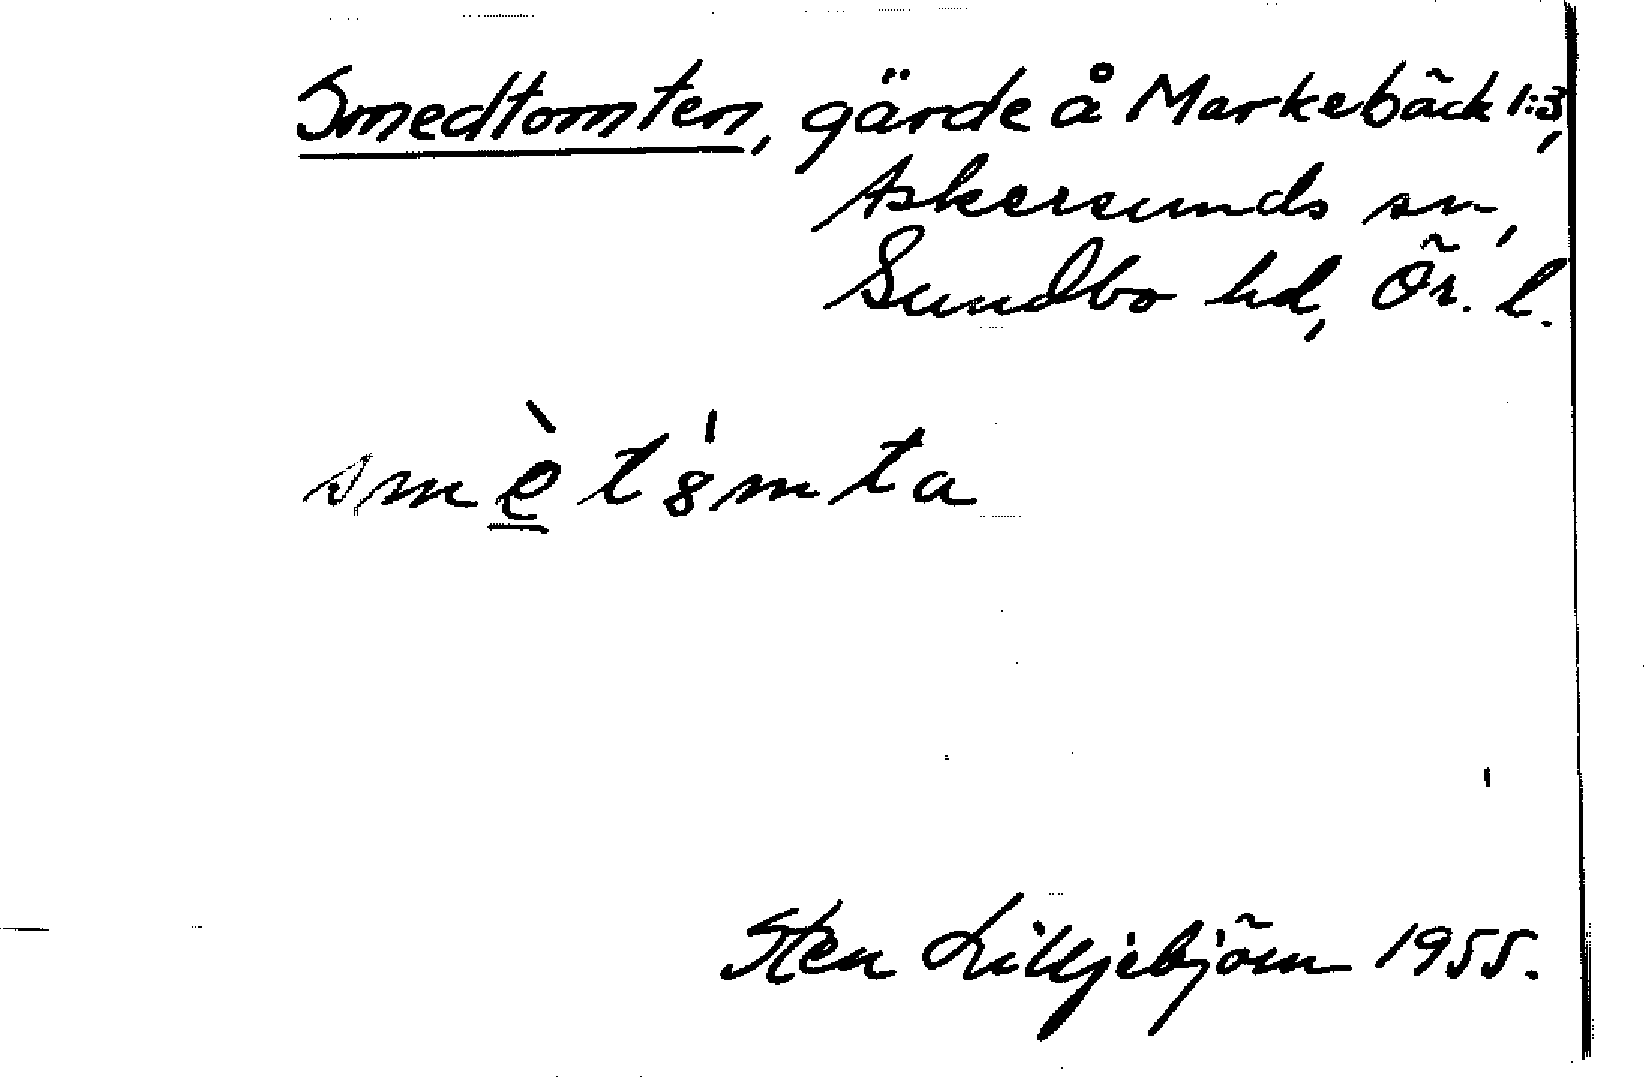 Smedtomten, gärde å Markebäck 1:3,
Askersunds sn,
Sundbo hd, Ör. l.
smè̲t8́mta
Sten Liljebjörn 1955.